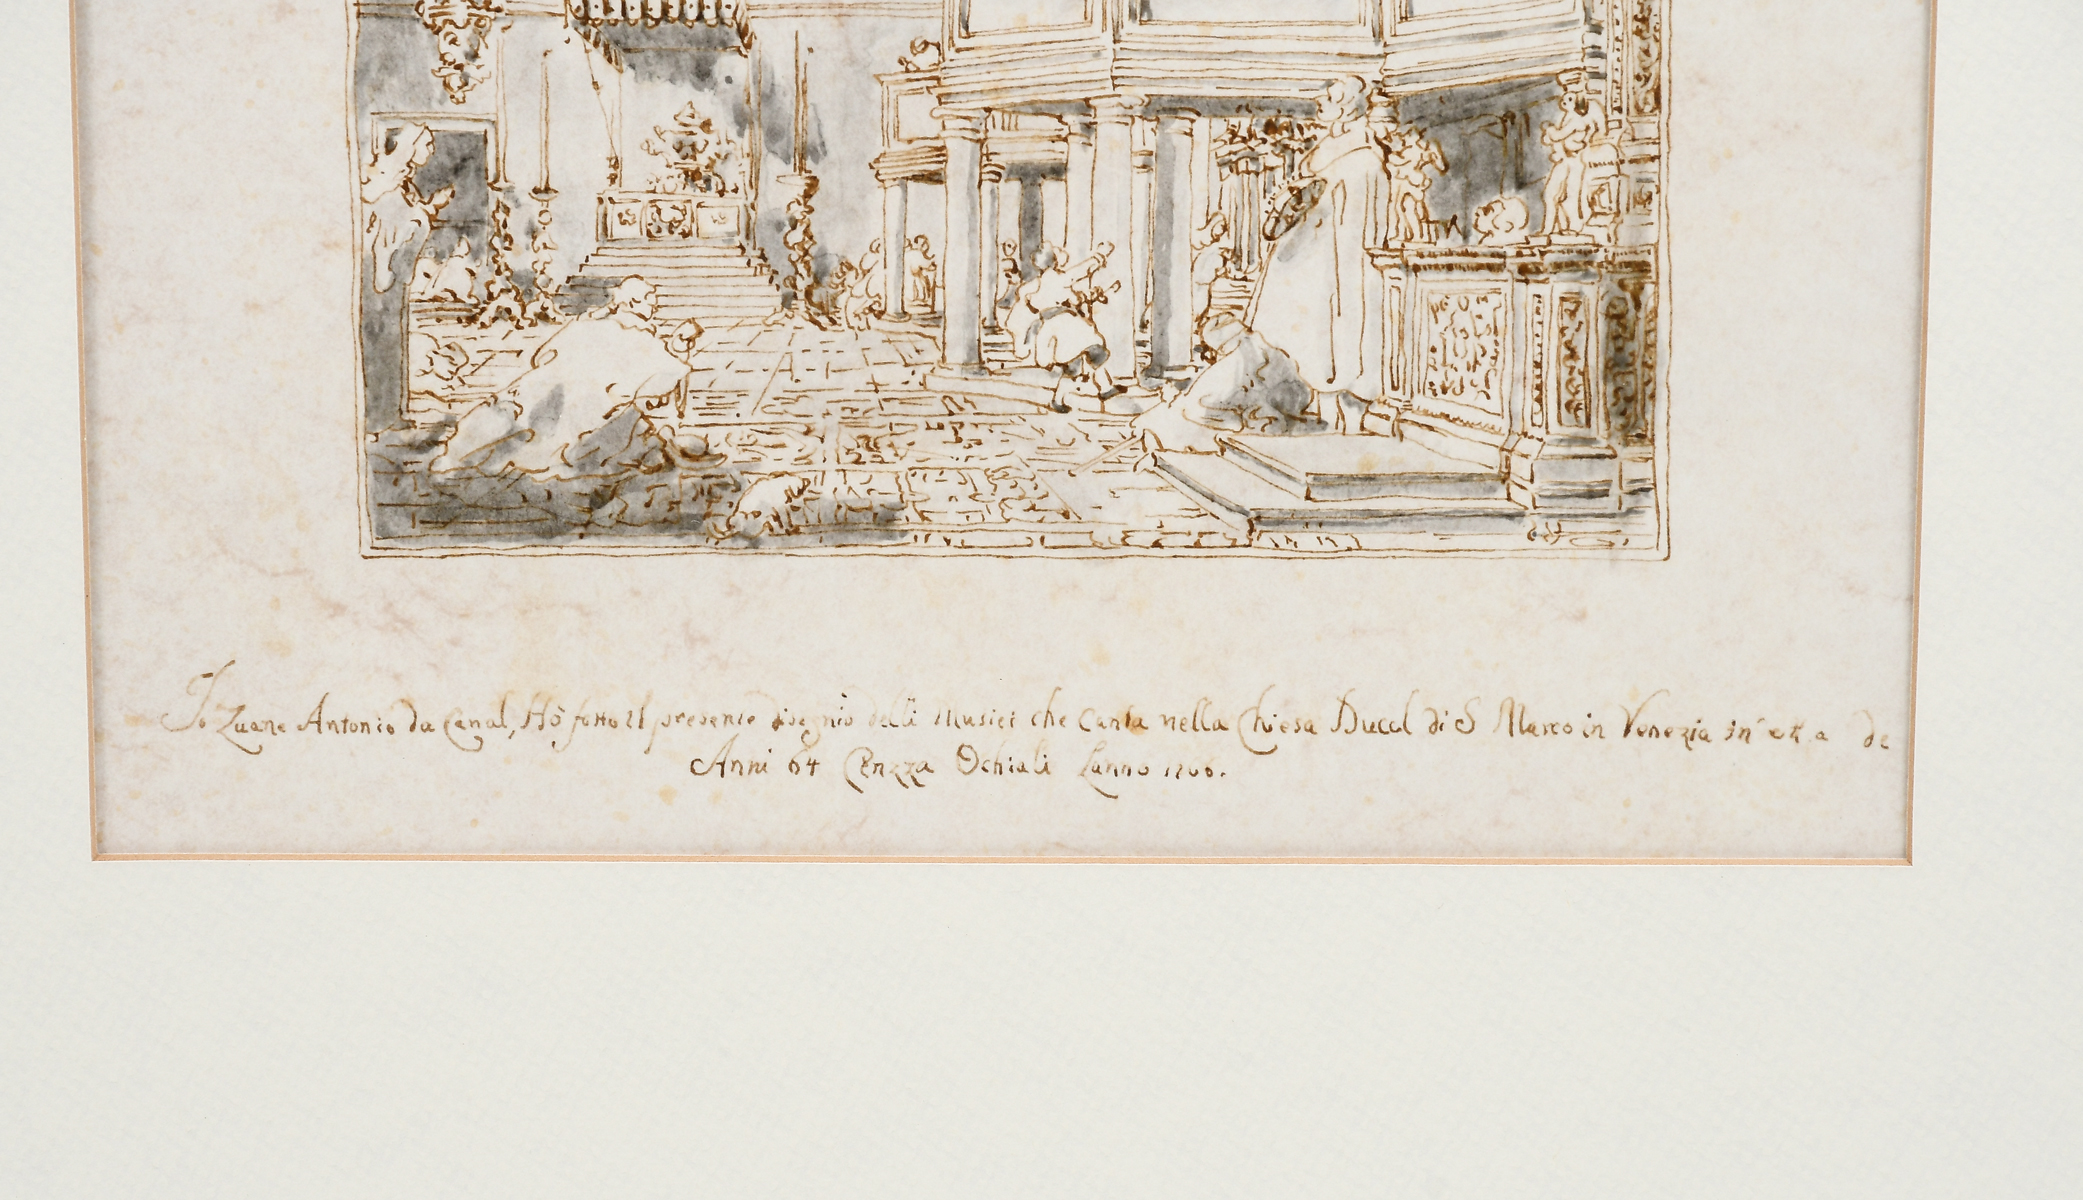 Io Zuane Antonio da Canal, Hò fatto il presente disegnio delli Musici che Canta nella Chiesa Ducal di S Marco in Venezia in età de
Anni 64 Cenzza Ochiali Lanno 1766.